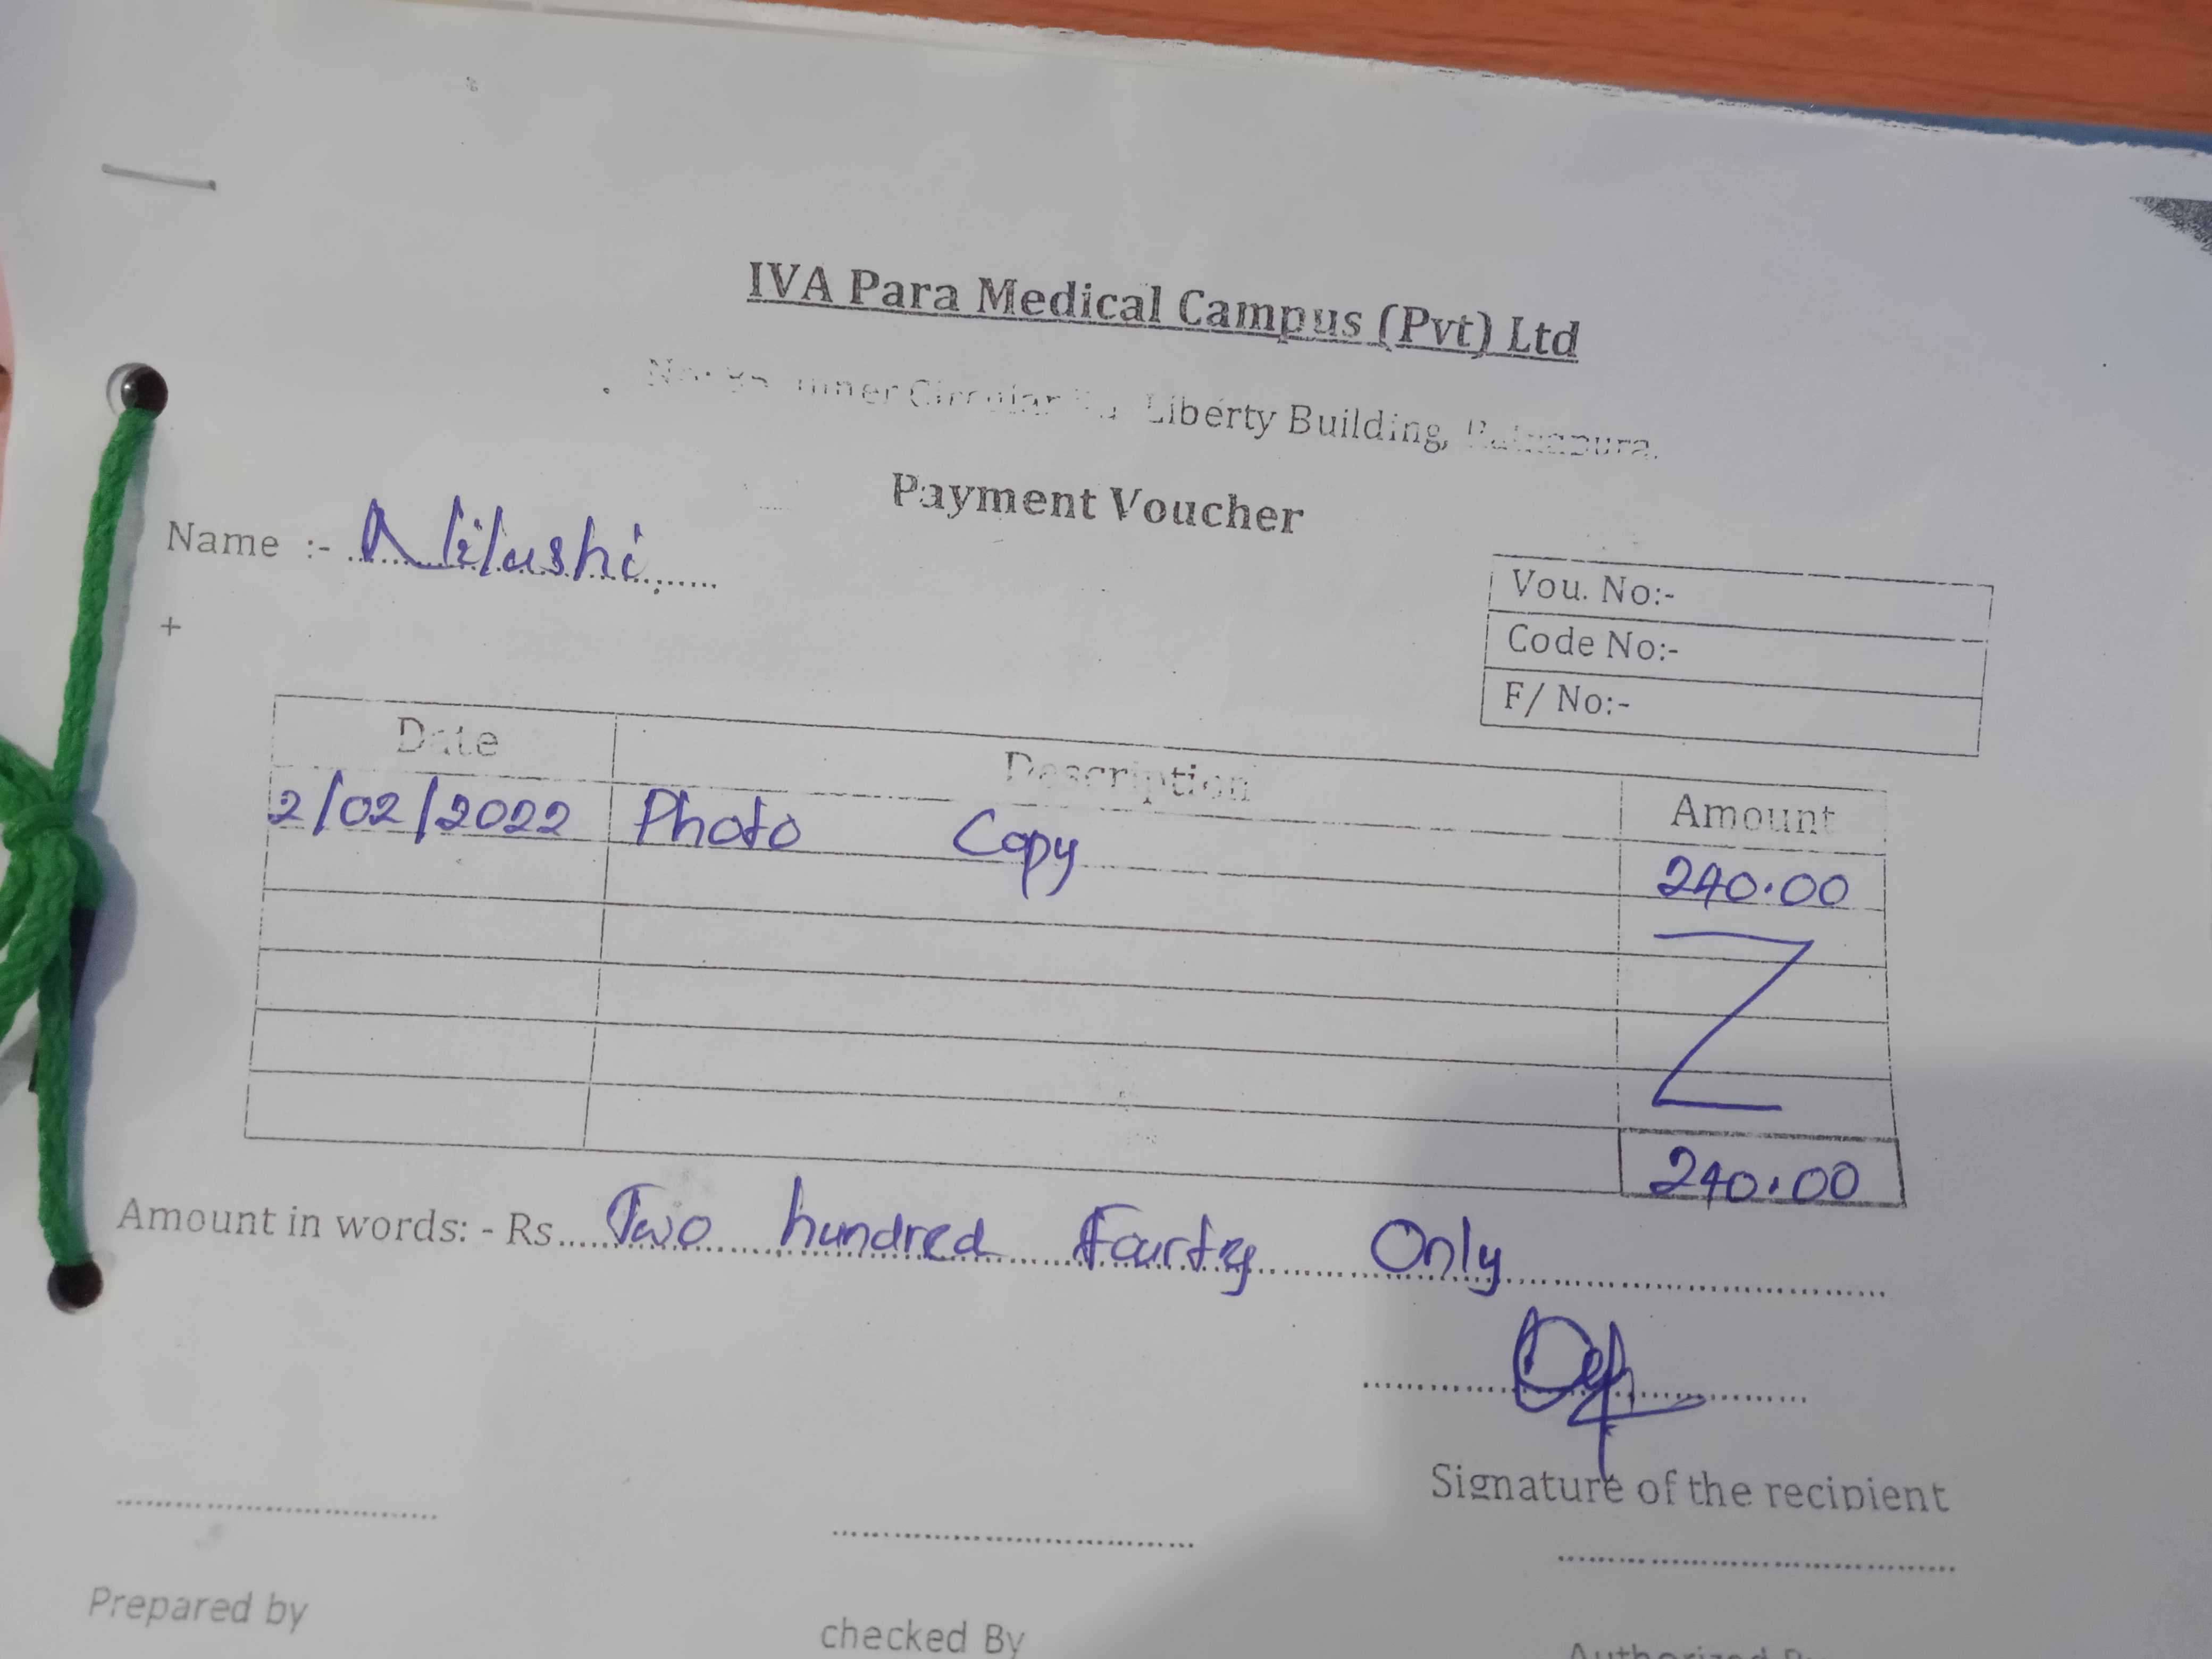 IVA Para Medical Campus (Pvt) Ltd
Inner Circular Liberty Building, Ratnapura.
Payment Voucher
Name :- Nilushi
Vou. No:-
Code No:-
F/ No:-
+
Date Description Amount
2/02/2022 Photo Copy 240.00
240.00
Amount in words: - Rs Two hundred Fourty Only
Signature of the recipient
Prepared by
checked By